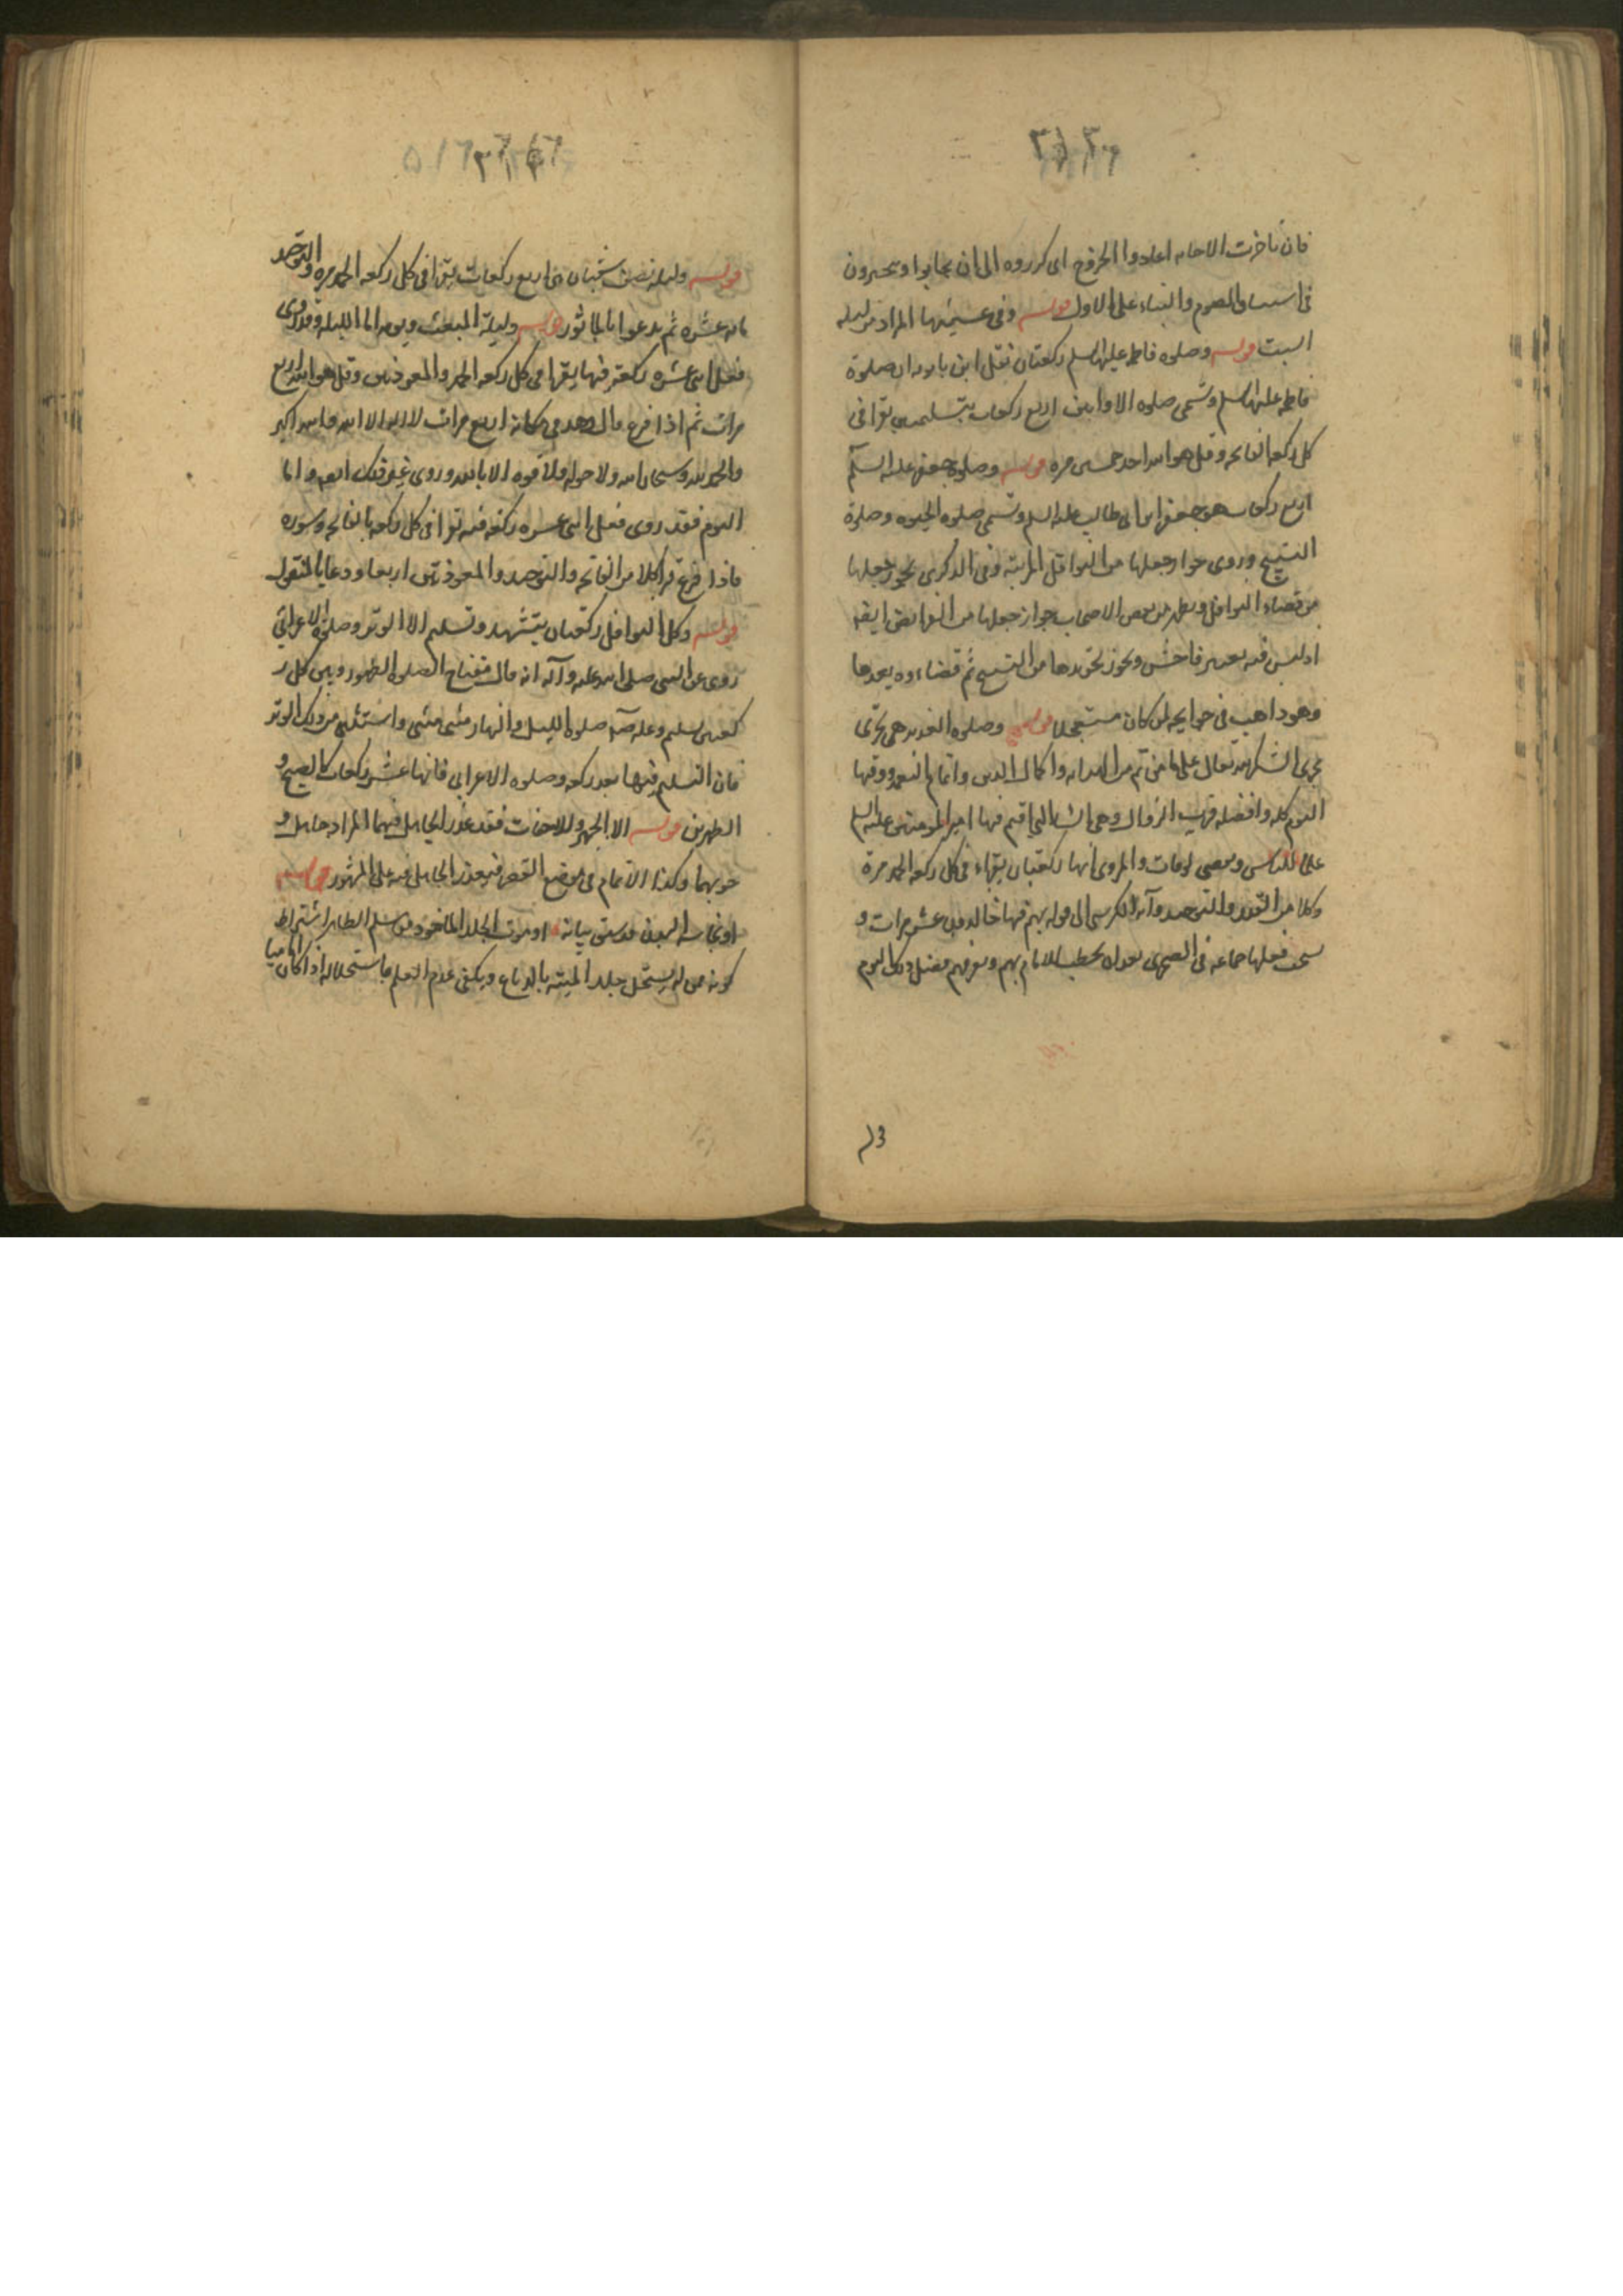 فان تاخرت الاجابه اعادوا الخروج اى كرروه الى ان يجابوا ويتخيرون
فى استيناف الصوم والبناء على الاول قوله وفى عشيتها المراد من ليله
السبت قوله وصلوه فاطمه عليها السلم ركعتان نقل ابن بابويه ان صلوة
فاطمه عليها السلم وتسمى صلوه الاوابين اربع ركعات بتسليمتين يقرا فى
كل ركعه الفاتحه وقل هو الله احد خمسين مره قوله وصلوة جعفر عليه السلم
اربع ركعات هو جعفر ابن ابى طالب عليه السلم وتسمى صلوه الحبوه وصلوة
التسبيح وروى جواز جعلها من النوافل المرتبه وفى الذكرى يجوز جعلها
من قضاء النوافل ويظهر من بعض الاصحاب جواز جعلها من الفرائض ايضه
اذ ليس فيه تغيير فاحش ويجوز تجريدها من التسبيح ثم قضاءوه بعدها
وهو ذاهب فى حوايجه لمن كان مستعجلا قوله وصلوه الغدير هى تجرى
مجرى الشكر لله تعالى على ما من تم من الهدايه واكمال الدين واتمام النعمه ووقتها
اليوم كله وافضله قريب الزوال وهى الساعه التى اقيم فيها امير المومنين عليه السلم
علما للناس وبعض لوقات والمروى انها ركعتان يقراء فى كل ركعه الحمد مرة
وكلا من القدر والتوحيد وآيه الكرسى الى قوله هم فيها خالدون عشر مرات و
يستحب فعلها جماعه فى الصحرى بعد ان يخطب الامام بهم ويعرفهم فضل ذلك اليوم
قوله وليله نصف شعبان هى اربع ركعات يقرا فى كل ركعه الحمد مره والتوحيد
مايه عشره ثم يدعوا بالماثور قوله وليلة المبعث ويومه اما الليله فقد روى
فعل اثنى عشره ركعه فيها يقرا فى كل ركعه الحمد والمعوذتين وقل هو الله اربع
مرات ثم اذا فرغ قال وهو فى مكانه اربع مرات لا اله الا الله والله اكبر
والحمد لله وسبحان الله ولا حول ولا قوه الا بالله وروى غير ذلك ايضه واما
اليوم فقد روى فعل اثنى عشره ركعه فيه يقرا فى كل ركعه بالفاتحه وسوره
فاذا فرغ قرا كلا من الفاتحه والتوحيد والمعوذتين اربعا ودعا بالمنقول
قوله وكل النوافل ركعتان بتشهد وتسليم الا الوتر وصلوة الاعرابى
روى عن النبى صلى الله عليه وآله انه قال مفتاح الصلوه الطهور وبين كل ر
كعتين تسليم وعنه صلوه الليل والنهار مثنى مثنى واستثنى من ذلك الوتر
فان التسليم فيها بعد ركعه وصلوه الاعرابى فانها عشر ركعات كالصبح و
الظهرين قوله الا الجهر والاخفات فقد عذر الجاهل فيهما المراد جاهل و
جوبهما وكذا الاتمام فى موضع القصر فيعذر الجاهل فيه على المشهور قوله
او نجاسه البدن قد سبق بيانه او موت الجلد الماخوذ من مسلم الظاهر اشتراط
كونه ممن لا يستحل جلد الميته بالدباغ ويكفى عدم العلم باستحلاله اذا كان اماميا